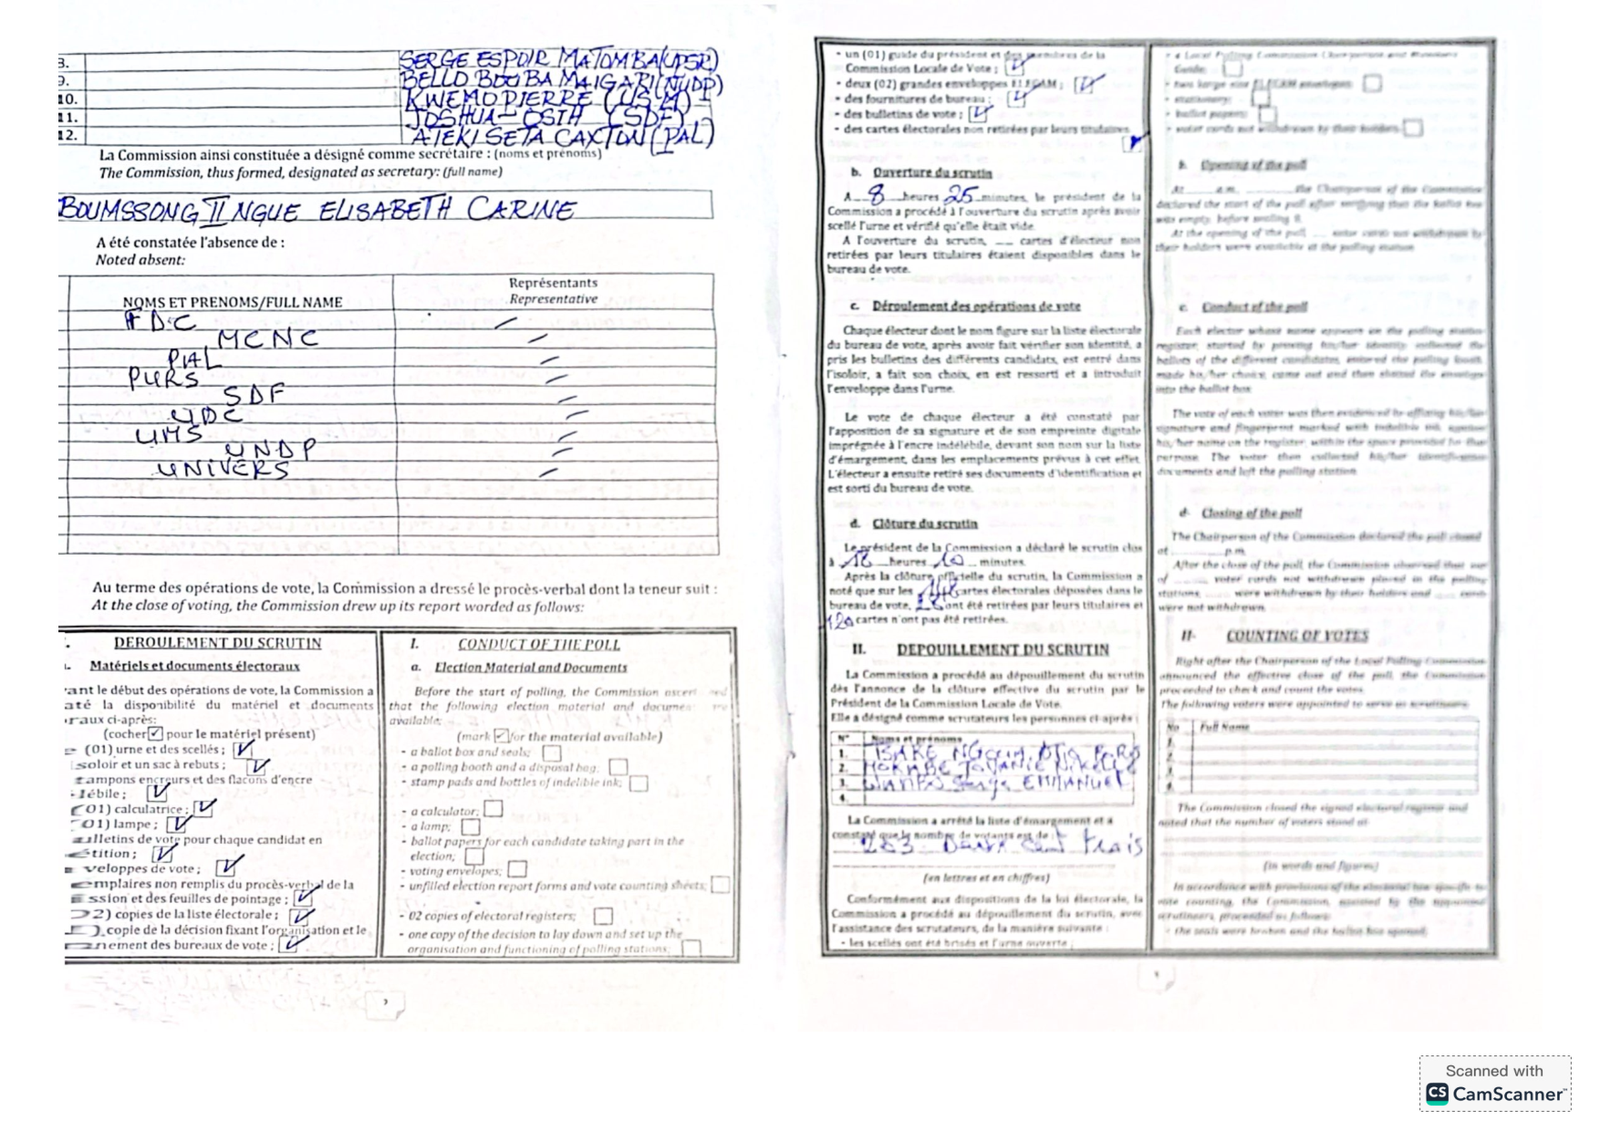 8.
SERGE ESPOIR MATOMBA (PURS)
9.
BELLO BOUBA MAIGARI (NUDP)
10.
KWEMO PIERRE
11.
JOSHUA OSIH (SDF)
12.
ATEKI SETA CAXTON (PAL)
La Commission ainsi constituée a désigné comme secrétaire : (noms et prénoms)
The Commission, thus formed, designated as secretary: (full name)
BOUMSSONG II NGUE ELISABETH CARINE
A été constatée l'absence de :
Noted absent:
NOMS ET PRENOMS/FULL NAME
Représentants
Representative
FDC
MCNC
PAL
PURS
SDF
UDC
UMS
UNDP
UNIVERS
Au terme des opérations de vote, la Commission a dressé le procès-verbal dont la teneur suit :
At the close of voting, the Commission drew up its report worded as follows:
DEROULEMENT DU SCRUTIN
Matériels et documents électoraux
ant le début des opérations de vote, la Commission a
até la disponibilité du matériel et documents
raux ci-après:
(cocher ☑ pour le matériel présent)
(01) urne et des scellés ;
soloir et un sac à rebuts ;
tampons encreurs et des flacons d'encre
lébile ;
(01) calculatrice ;
01) lampe ;
ulletins de vote pour chaque candidat en
tition ;
veloppes de vote ;
mplaires non remplis du procès-verbal de la
ssion et des feuilles de pointage ;
2) copies de la liste électorale ;
) copie de la décision fixant l'organisation et le
nement des bureaux de vote ;
I. CONDUCT OF THE POLL
a. Election Material and Documents
Before the start of polling, the Commission
that the following election material and
available:
(mark ☑ for the material available)
- a ballot box and seals;
- a polling booth and a disposal bag;
- stamp pads and bottles of indelible ink;
- a calculator;
- a lamp;
- ballot papers for each candidate taking part in the
election;
- voting envelopes;
- unfilled election report forms and vote counting sheets;
- 02 copies of electoral registers;
- one copy of the decision to lay down and set up the
organisation and functioning of polling stations;
- un (01) guide du président et des membres de la
Commission Locale de Vote ;
- deux (02) grandes enveloppes ELECAM ;
- des fournitures de bureau ;
- des bulletins de vote ;
- des cartes électorales non retirées par leurs titulaires
b. Ouverture du scrutin
A 8 heures 25 minutes, le président de la
Commission a procédé à l'ouverture du scrutin après avoir
scellé l'urne et vérifié qu'elle était vide.
A l'ouverture du scrutin, cartes d'électeur non
retirées par leurs titulaires étaient disponibles dans le
bureau de vote.
c. Déroulement des opérations de vote
Chaque électeur dont le nom figure sur la liste électorale
du bureau de vote, après avoir fait vérifier son identité, a
pris les bulletins des différents candidats, est entré dans
l'isoloir, a fait son choix, en est ressorti et a introduit
l'enveloppe dans l'urne.
Le vote de chaque électeur a été constaté par
l'apposition de sa signature et de son empreinte digitale
imprégnée à l'encre indélébile, devant son nom sur la liste
d'émargement, dans les emplacements prévus à cet effet.
L'électeur a ensuite retiré ses documents d'identification et
est sorti du bureau de vote.
d. Clôture du scrutin
Le président de la Commission a déclaré le scrutin clos
à 18 heures 10 minutes.
Après la clôture officielle du scrutin, la Commission a
noté que sur les 148 cartes électorales déposées dans le
bureau de vote, 28 ont été retirées par leurs titulaires et
120 cartes n'ont pas été retirées.
II. DEPOUILLEMENT DU SCRUTIN
La Commission a procédé au dépouillement du scrutin
dès l'annonce de la clôture effective du scrutin par le
Président de la Commission Locale de Vote.
Elle a désigné comme scrutateurs les personnes ci-après :
N° Noms et prénoms
1.
2.
3. EMMANUEL
4.
La Commission a arrêté la liste d'émargement et a
constaté que le nombre de votants est de :
203 Deux cent trois
(en lettres et en chiffres)
Conformément aux dispositions de la loi électorale, la
Commission a procédé au dépouillement du scrutin, avec
l'assistance des scrutateurs, de la manière suivante :
- les scellés ont été brisés et l'urne ouverte ;
b. Opening of the poll
c. Conduct of the poll
The vote of each voter was then evidenced by affixing his/her
signature and fingerprint marked with indelible ink against
his/her name on the register, within the space provided for that
purpose. The voter then collected his/her identification
documents and left the polling station.
d. Closing of the poll
The Chairperson of the Commission declared the poll closed
at p.m.
After the close of the poll, the Commission observed that out
of voter cards not withdrawn placed in the polling
stations, were withdrawn by their holders and cards
were not withdrawn.
II- COUNTING OF VOTES
Right after the Chairperson of the Local Polling Commission
announced the effective close of the poll, the Commission
proceeded to check and count the votes.
The following voters were appointed to serve as scrutineers
No Full Name
The Commission closed the signed electoral register and
noted that the number of voters stood at:
(in words and figures)
- the seals were broken and the ballot box opened;
Scanned with
CS CamScanner